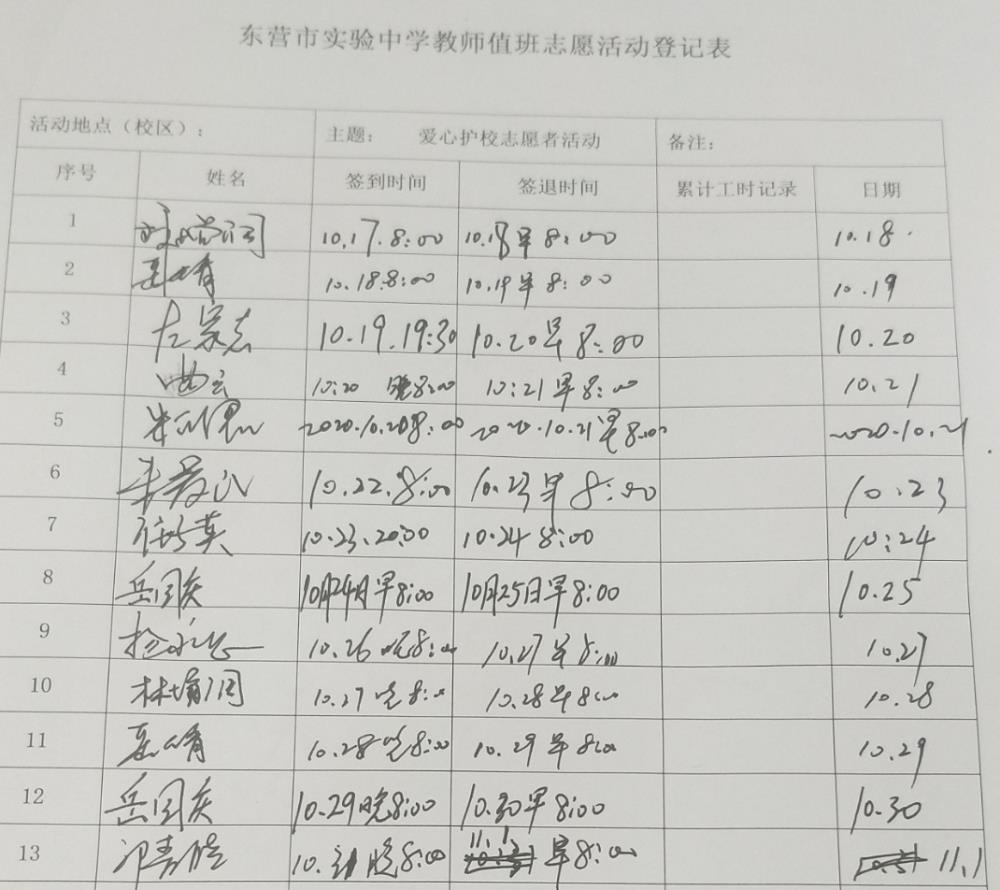 东营市实验中学教师值班志愿活动登记表
活动地点（校区）： 主题： 爱心护校志愿者活动 备注：
序号 姓名 签到时间 签退时间 累计工时记录 日期
1 10.17.8:00 10.18早8:00 10.18
2 10.18.8:00 10.19早8:00 10.19
3 左宗志 10.19.19:30 10.20早8:00 10.20
4 10:20 晚8:00 10:21早8:00 10.21
5 2020.10.20 8:00 2020.10.21早8:00 2020.10.21
6 10.22.8:00 10.23早8:00 10.23
7 10.23.20:00 10.24 8:00 10:24
8 岳国庆 10月24日早8:00 10月25日早8:00 10.25
9 10.26晚8:00 10.27早8:00 10.27
10 10.27晚8:00 10.28早8:00 10.28
11 10.28晚8:00 10.29早8:00 10.29
12 岳国庆 10.29晚8:00 10.30早8:00 10.30
13 10.31晚8:00 11.1早8:00 11.1